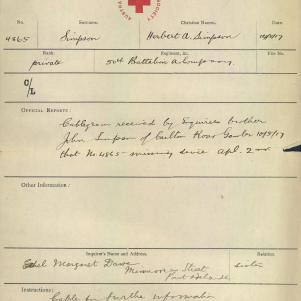 SOCIETY
AUSTRA
No. Surname. Christian Names. Date.
4865 Simpson Herbert A. Simpson
Rank: Regiment, &c. File No.
private 50th Battalion A Company
C/L
OFFICIAL REPORTS:
Cablegram received by Enquirers brother
John Simpson of Carlton Road Gawler 10/5/17
that No 4865 missing since Apl. 2nd.
Other Information:
Inquirer's Name and Address. Relation.
Ethel Margaret Dawe sister
Street
Port Adelaide
Instructions:
Cable for further information